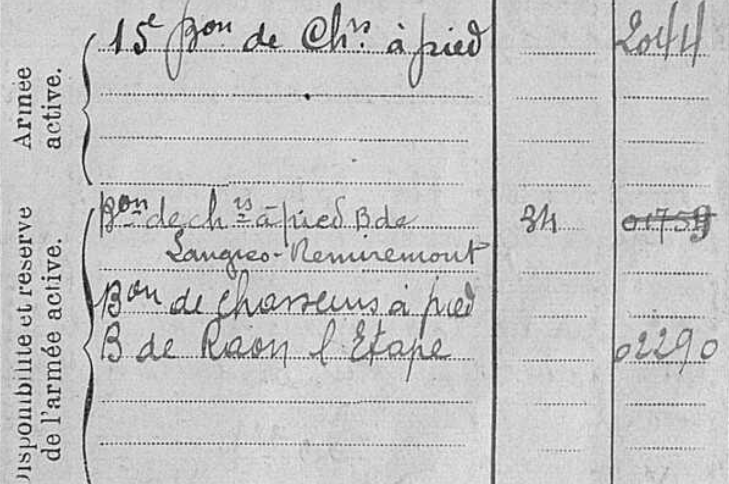 Armée
active.
15e Bon de Chrs à pied 2044
Disponibilité et réserve
de l'armée active.
Bon de chrs à pied B de 34 01759
Langres-Remiremont
Bon de chasseurs à pied
B de Raon l'Etape 02290